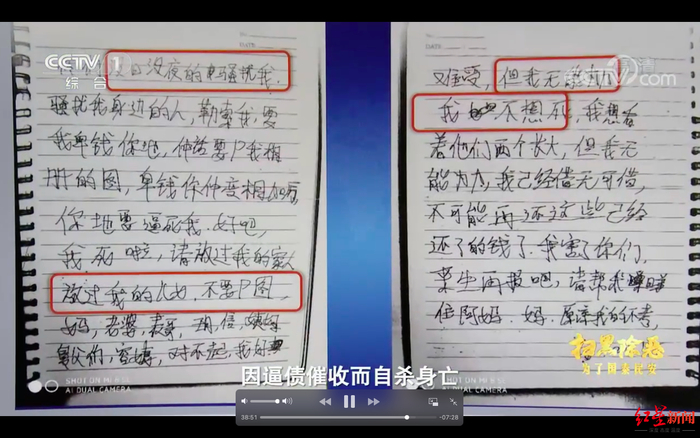 CCTV 1
综合
DATE
没日没夜的电骚扰我,
骚扰我身边的人,勒索我,要
我卑钱你地,仲话要P我相
册的图,卑钱你仲变相加
你地要逼死我,好吧,
我死啦,请放过我的家人
放过我的儿女,不要P图,
妈,老婆,
对不起,我好
SHOT ON MI
AI DUAL CAMERA
高清
DATE
难受,但我无能为力
我不想死,我想看
着他们两个长大,但我无
能为力,我已经借无可借,
不可能再还这些已经
还了的钱了,我害了你们,
来生再报吧,请帮我
住阿妈,妈,原谅我的不孝,
SHOT ON MI
AI DUAL CAMERA
因逼债催收而自杀身亡
扫黑除恶
为了国泰民安
38:51
-07:28
红星新闻